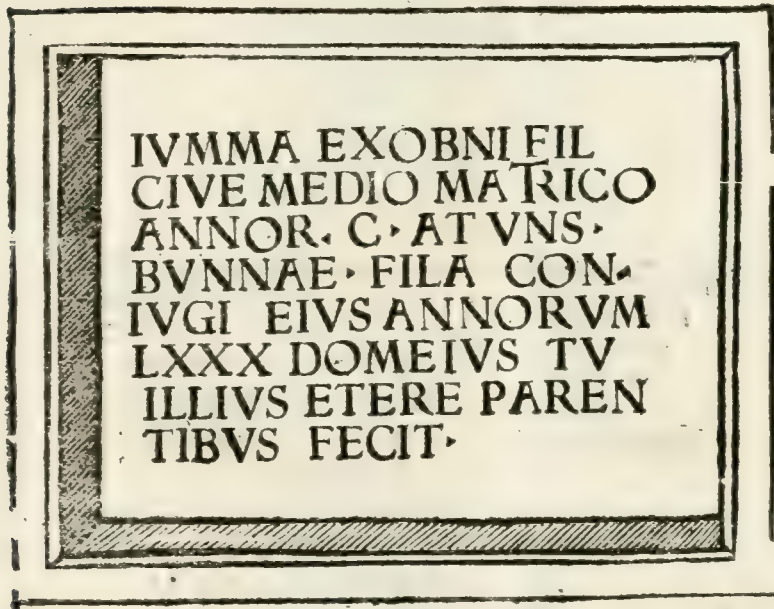 IVMMA EXOBNI FIL
CIVE MEDIO MATRICO
ANNOR. C · AT VNS ·
BVNNAE · FILA CON-
IVGI EIVS ANNORVM
LXXX DOMEIVS TV
ILLIVS ETERE PAREN
TIBVS FECIT ·